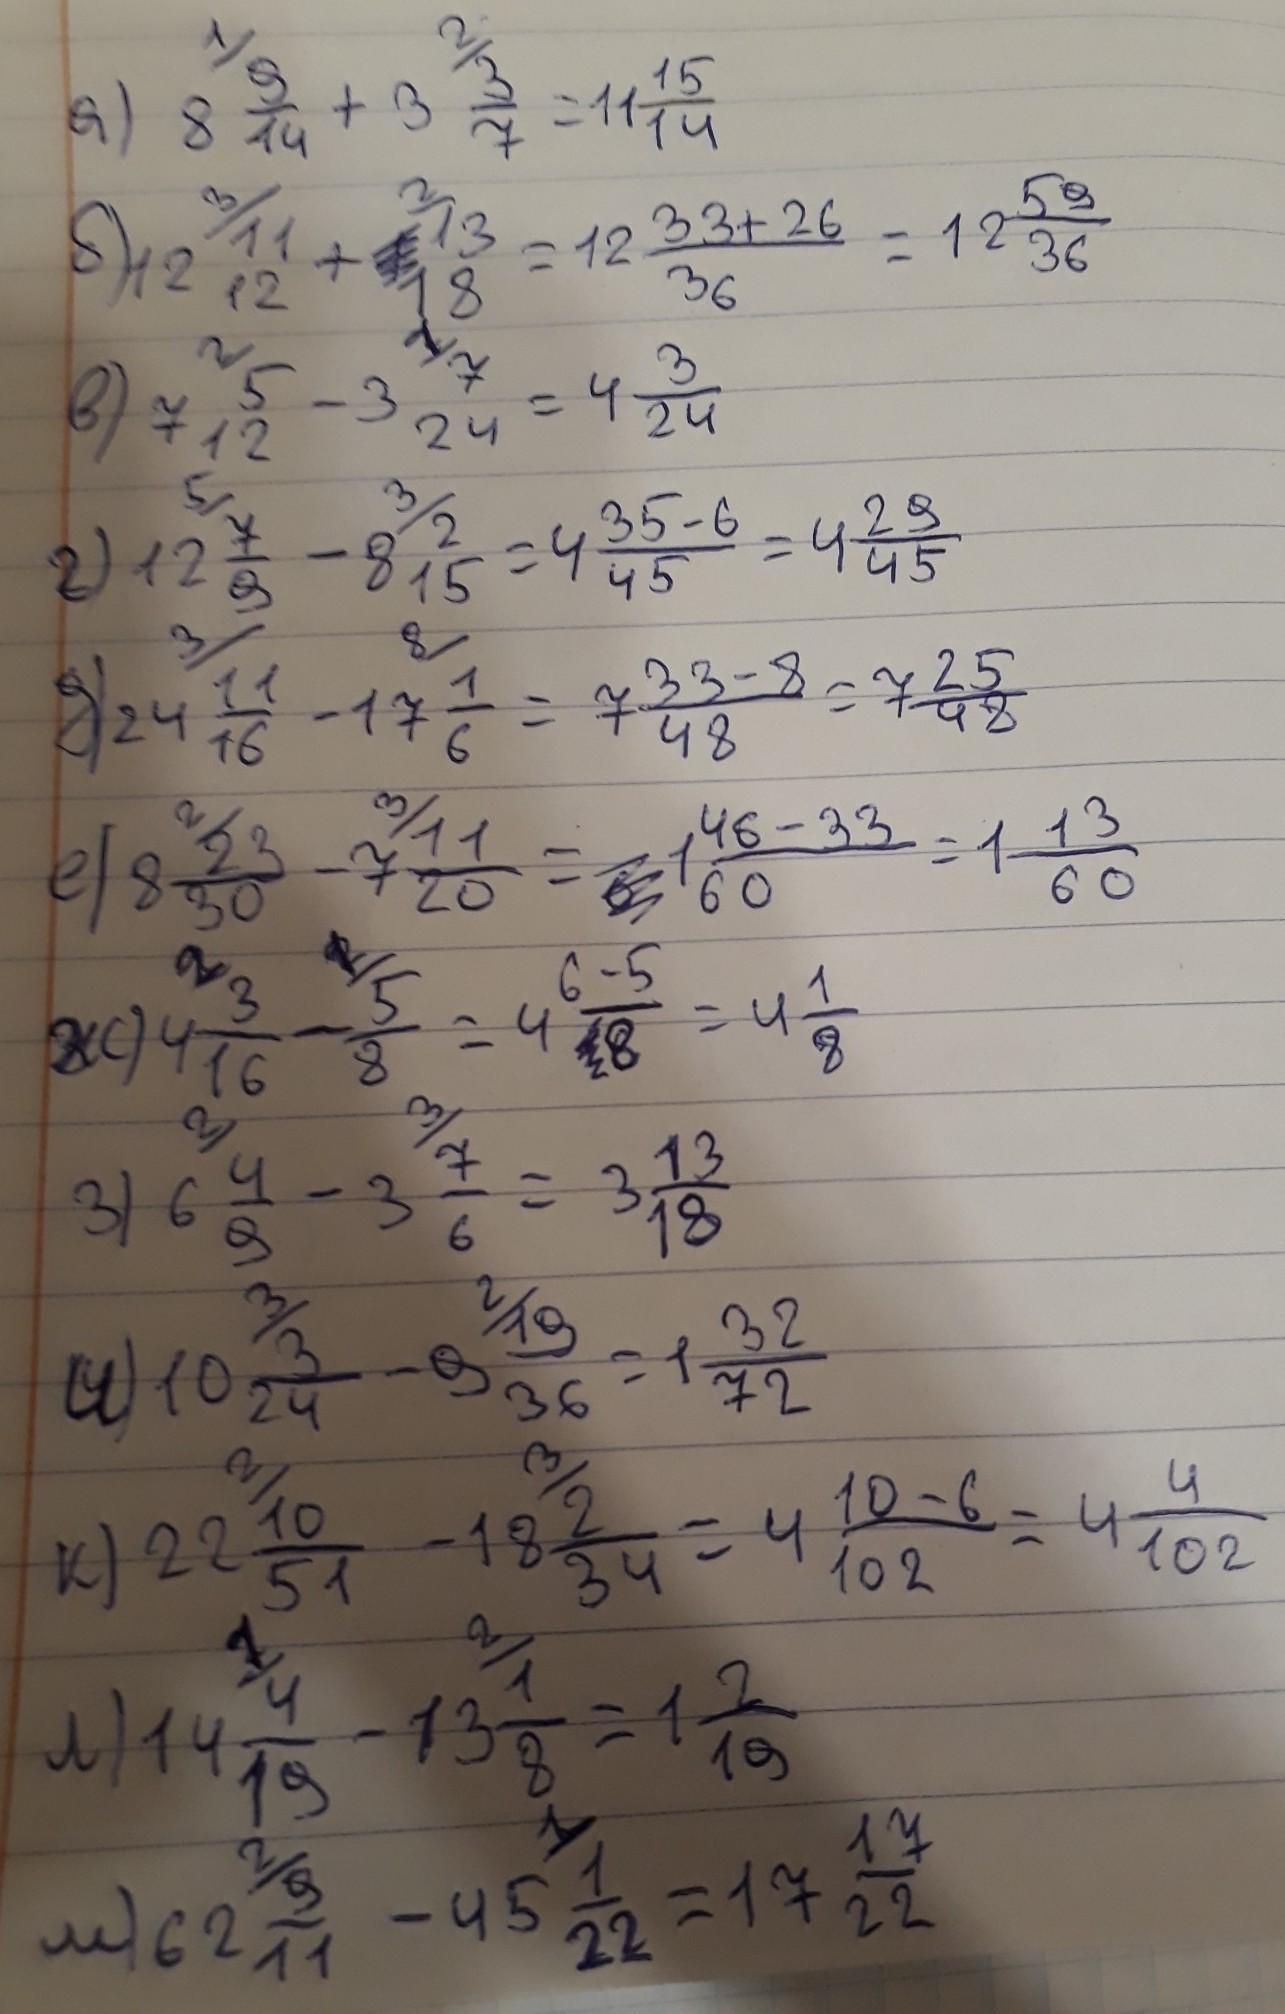 а) 8 1/ 9/14 + 3 2/ 3/7 = 11 15/14
б) 12 3/ 11/12 + 2/ 13/18 = 12 33+26/36 = 12 59/36
в) 7 2/ 5/12 - 3 1/ 7/24 = 4 3/24
г) 12 5/ 7/9 - 8 3/ 2/15 = 4 35-6/45 = 4 29/45
д) 24 3/ 11/16 - 17 8/ 1/6 = 7 33-8/48 = 7 25/48
е) 8 2/ 23/30 - 7 3/ 11/20 = 1 46-33/60 = 1 13/60
ж) 4 2 3/16 - 1/ 5/8 = 4 6-5/8 = 4 1/8
з) 6 2/ 4/9 - 3 3/ 7/6 = 3 13/18
и) 10 3/ 3/24 - 9 2/ 19/36 = 1 32/72
к) 22 2/ 10/51 - 18 3/ 2/34 = 4 10-6/102 = 4 4/102
л) 14 1/ 4/19 - 13 2/ 1/8 = 1 2/19
м) 62 2/ 9/11 - 45 1/ 1/22 = 17 17/22